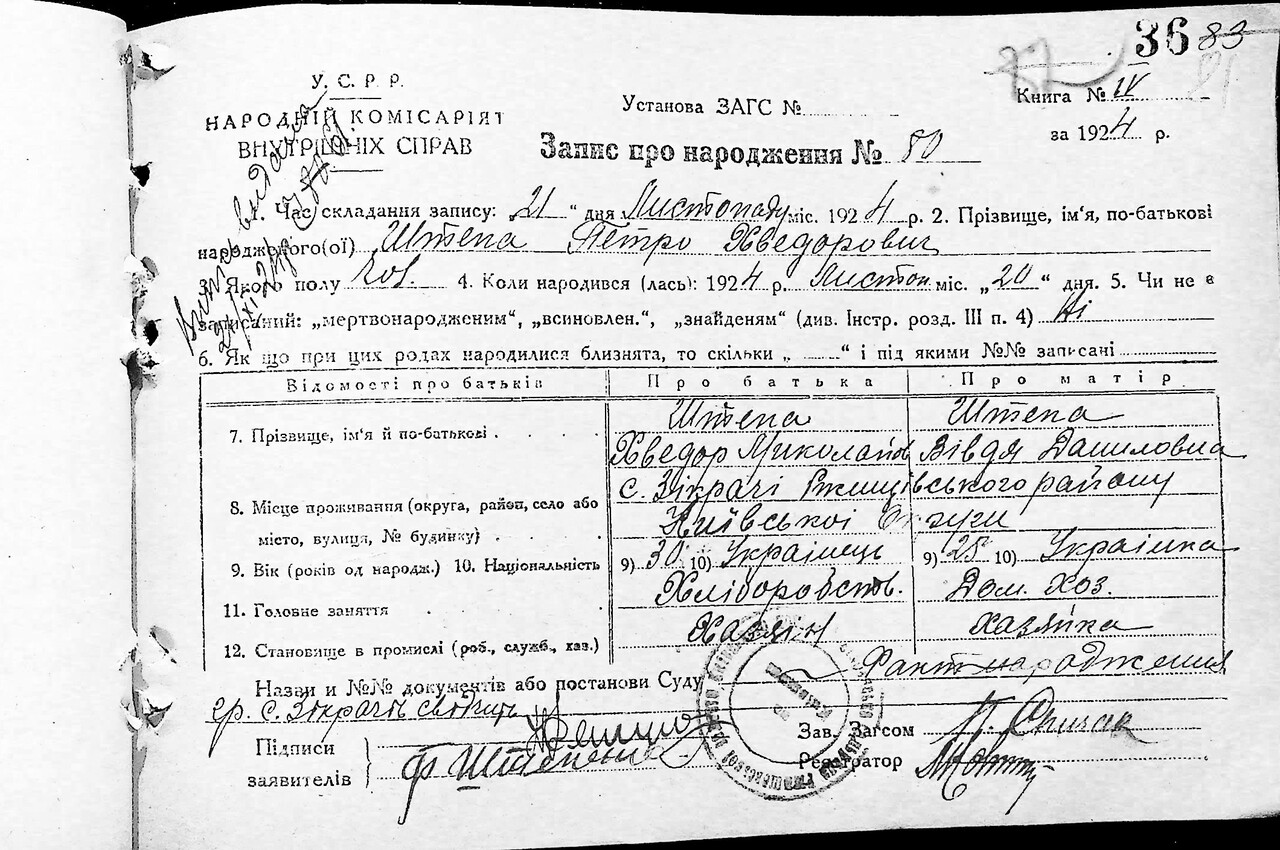 36 83
У. С. Р. Р.
НАРОДНІЙ КОМІСАРІЯТ
ВНУТРІШНІХ СПРАВ
Установа ЗАГС №
Книга № IV
за 1924 р.
Запис про народження № 80
1. Час складання запису: „21“ дня Листопаду міс. 1924 р. 2. Прізвище, ім'я, по-батькові
народженого(ої) Штепа Петро Хведорович
3. Якого полу Чол. 4. Коли народився (лась): 1924 р. Листоп міс. „20“ дня. 5. Чи не є
записаний: „мертвонародженим“, „всиновлен.“, „знайденям“ (див. Інстр. розд. III п. 4) Ні
6. Як що при цих родах народилися близнята, то скільки „ “ і під якими №№ записані
Відомості про батьків Про батька Про матір
7. Прізвище, ім'я й по-батькові
Штепа Хведор Миколайов
Штепа Вівдя Даниловна
8. Місце проживання (округа, район, село або
місто, вулиця, № будинку)
с. Зікрачі Ржищівського району
Київської Округи
9. Вік (років од народж.) 10. Національність 9) 30 10) Українець 9) 25 10) Українка
11. Головне заняття Хліборобств. Дом. Хоз.
12. Становище в промислі (роб., служб., хаз.) Хазяїн Хазяйка
Назви и №№ документів або постанови Суду Факт народження
гр. с. Зікрачів свідчить
Підписи
заявителів
Ф Штепенко
Зав. Загсом
Реєстратор